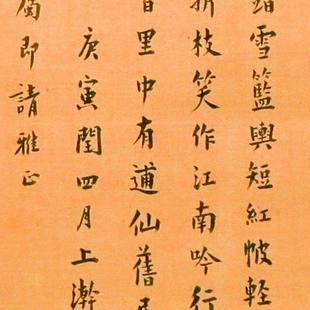 踏雪籃輿短紅帔輕
折枝笑作江南吟行
里中有逋仙舊
庚寅閏四月上澣
屬即請雅正